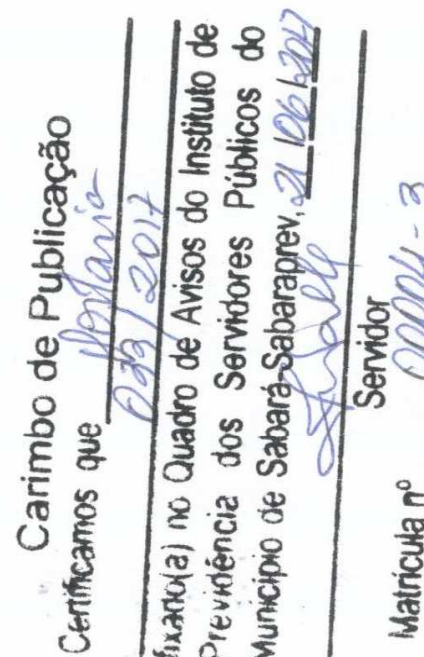 Carimbo de Publicação
Certificamos que Portaria
033/2017
fixado(a) no Quadro de Avisos do Instituto de
Previdência dos Servidores Públicos do
Município de Sabará-Sabaraprev, 21/06/2017
Servidor
Matrícula nº 00004-3